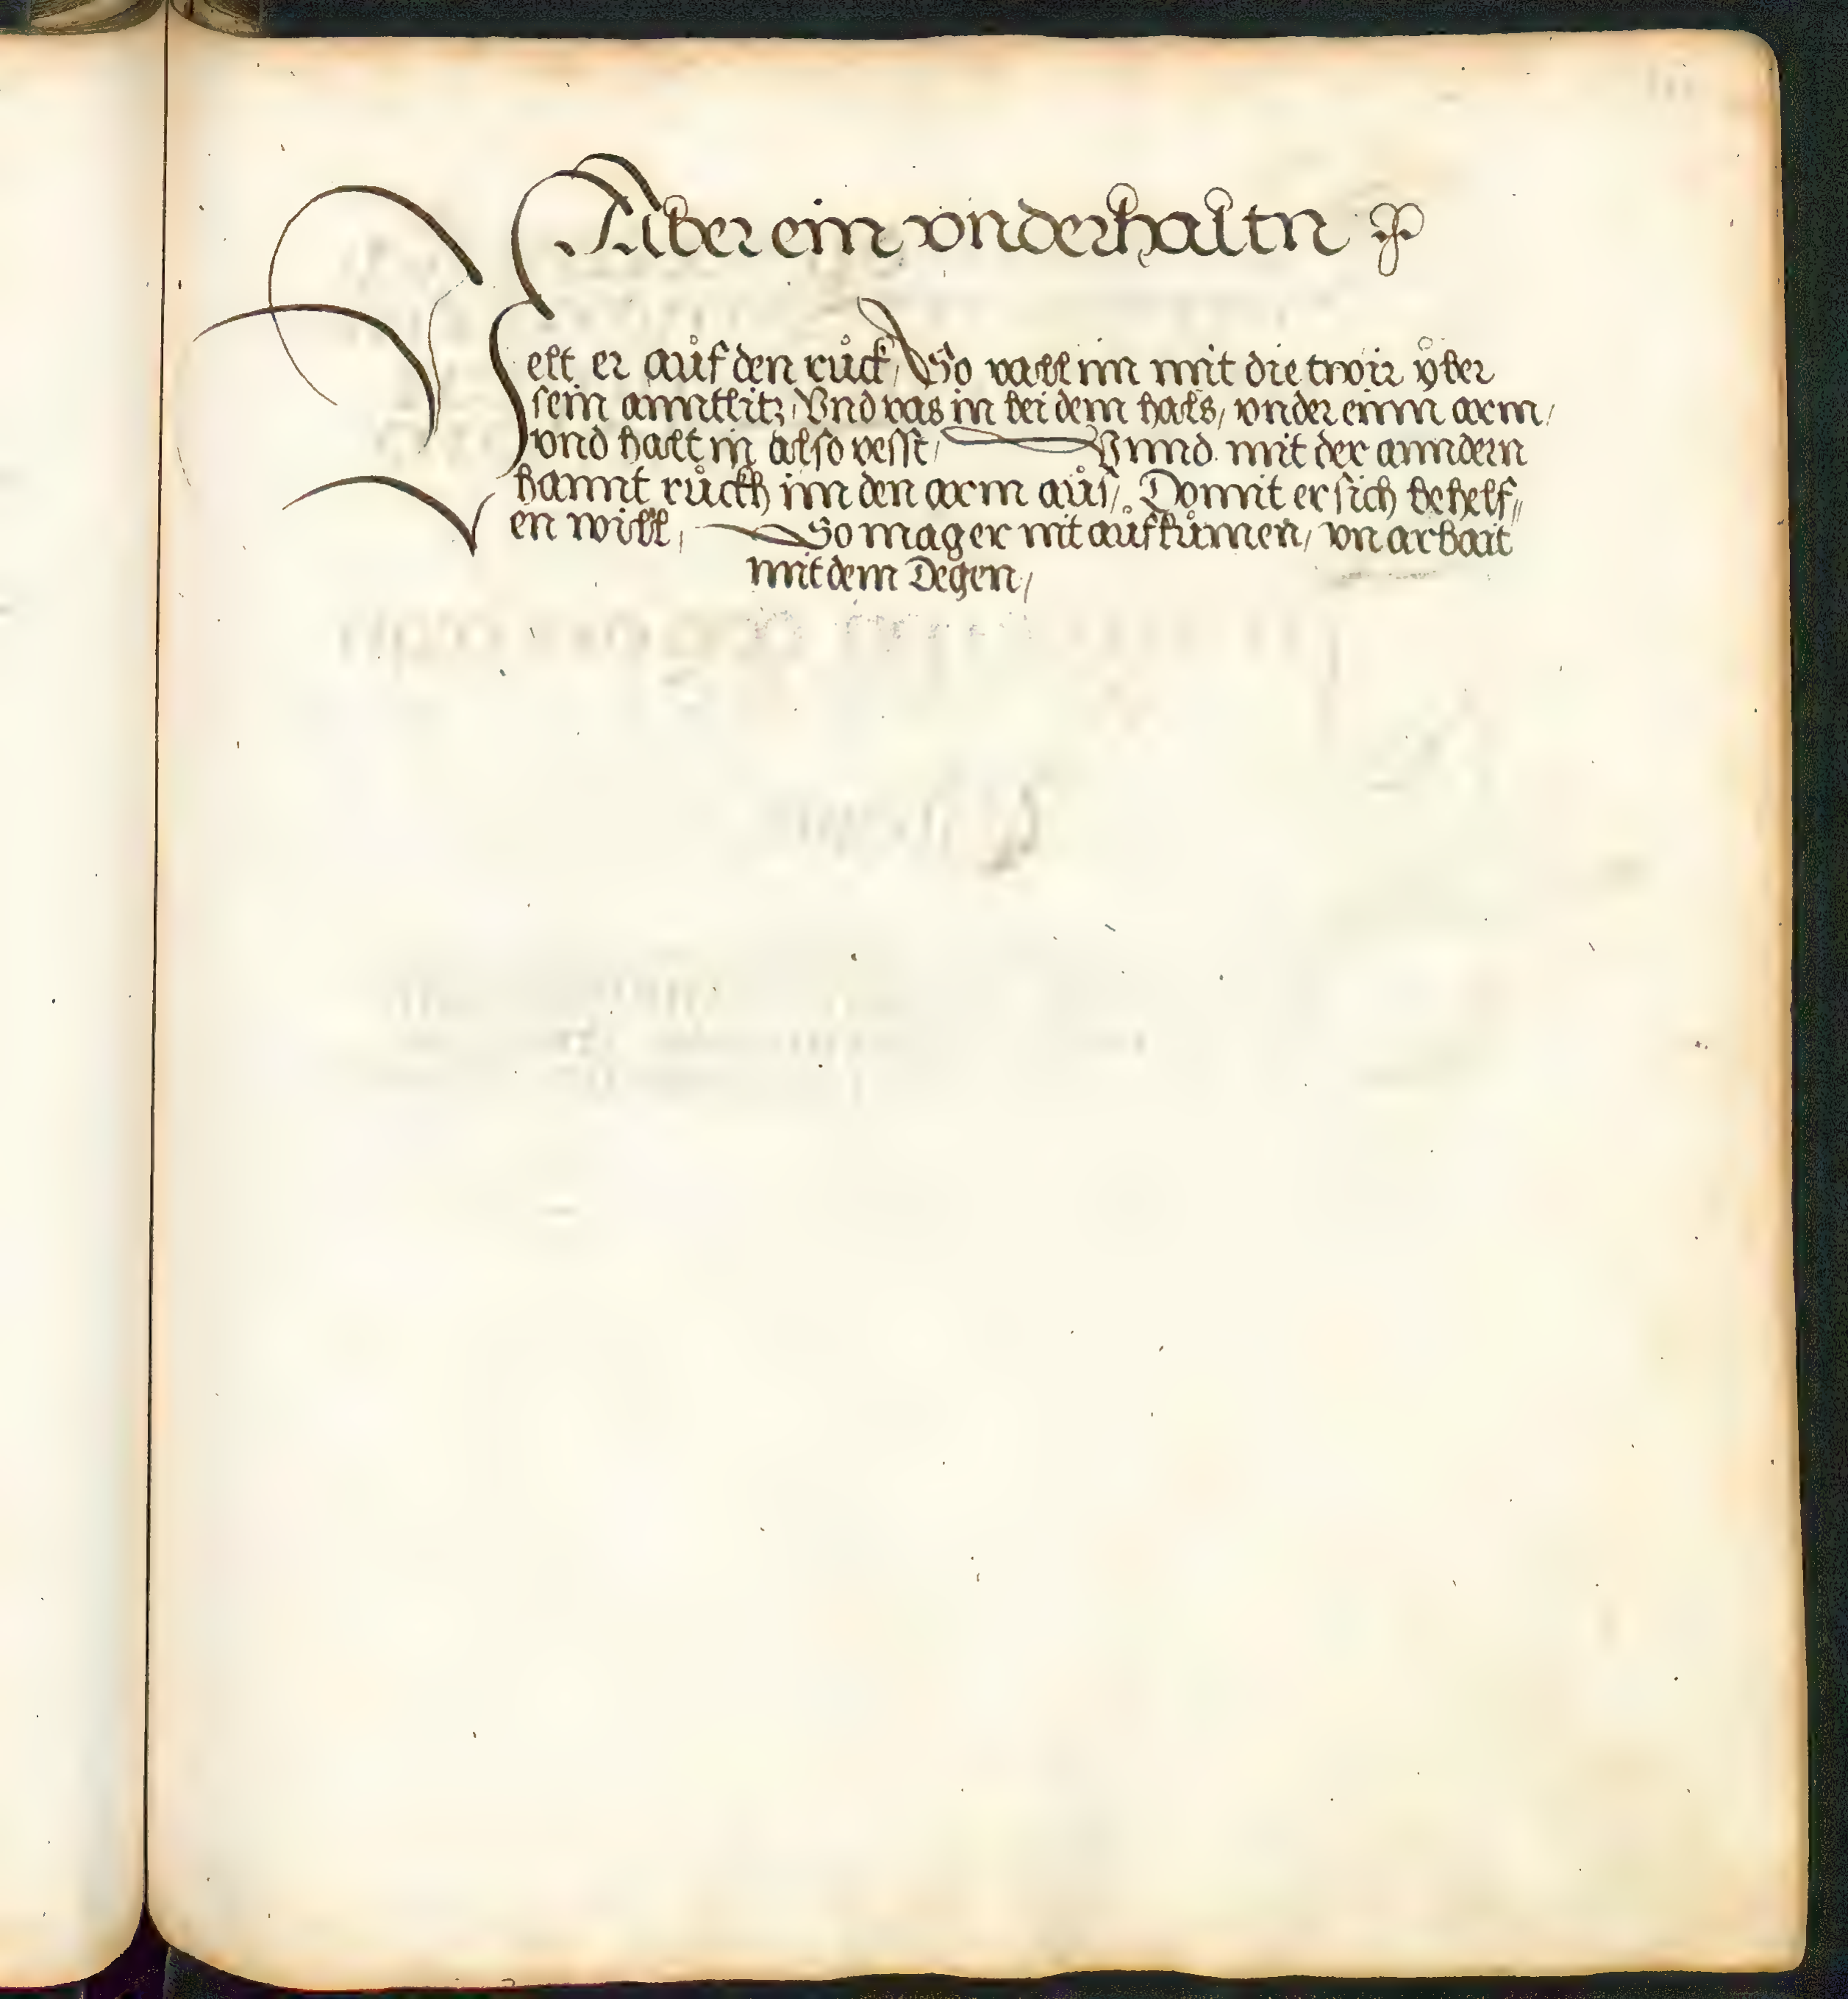 Aber ein vnderhaltn
Velt er aůf den růck, So vall im mit die twir ÿber
sein anntlitz, Vnd vas in bei dem hals, vnder einm arm,
vnd halt in also vesst, Vnnd mit der anndern
hannt růckh im den arm aůs, Domit er sich behelf„
en will, So mag er nit aůfkůmen, vn arbait
mit dem Degen,